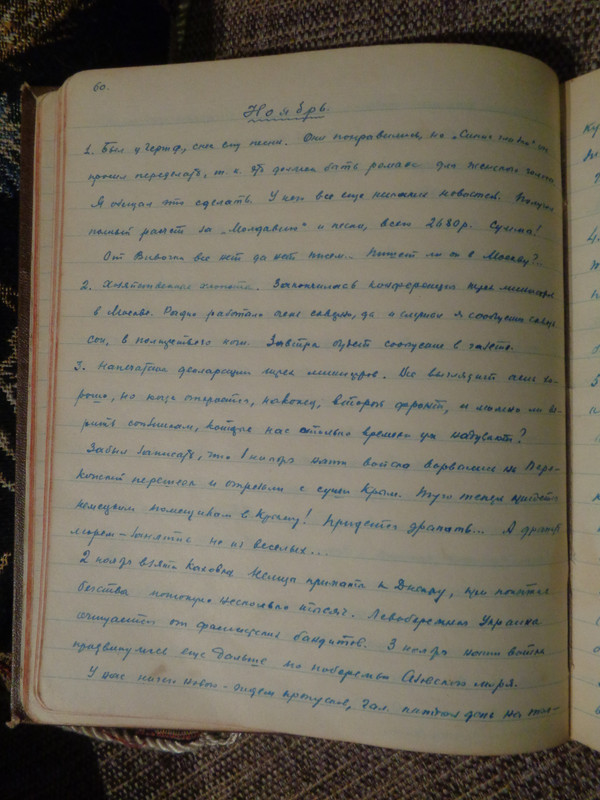 60.
Ноябрь.
1. Был у песни. Они понравились, но „Синие
просил переделать, т. к. это должен быть романс для женского голоса.
Я обещал это сделать. У него все еще никаких новостей. Получил
полный расчет за „Молдавию“ и песни, всего 2680 р. Сумма!
От все нет да нет писем.. Пишет ли он в Москву?..
2. Закончилась конференция трех министров
в Москве. Радио работало очень скверно, да и слушал я сообщение
сон, в половине ночи. Завтра будет сообщение в газете.
3. Напечатана декларация трех министров. Все выглядит очень хо-
рошо, но когда откроется, наконец, второй фронт, и можно ли ве-
рить союзникам, которые нас столько времени уж надувают?
Забыл записать, что 1 ноября наши войска ворвались на Пере-
копский перешеек и отрезали с суши Крым. Туго теперь придется
немецким помещикам в Крыму! Придется драпать... А драпать
морем – занятие не из веселых...
2 ноября взята Каховка. Немцы прижаты к Днепру, при попытке
бегства потонуло несколько тысяч. Левобережная Украина
очищается от фашистских бандитов. 3 ноября наши войска
продвинулись еще дальше по побережью Азовского моря.
У нас ничего нового – сидем пятый день на